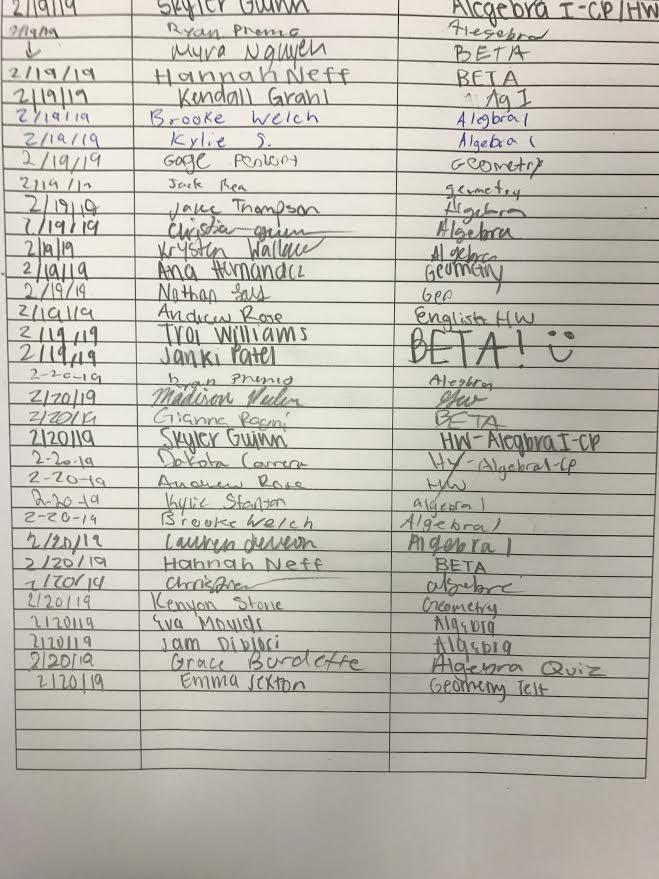 2/19/19 Skyler Guinn Alcgebra I-CP/HW
2/19/19 Ryan Premo Alegebra
Myra Nguyen BETA
2/19/19 Hannah Neff BETA
2/19/19 Kendall Grahl Ag I
2/19/19 Brooke Welch Alegbra 1
2/19/19 Kylie S. Algebra 1
2/19/19 Gage Geometry
2/19/19 Jack Rea geometry
2/19/19 Jake Thompson Algebra
2/19/19 Christian Algebra
2/19/19 Krysten Wallace Algebra
2/19/19 Ana Hernandez Geometry
2/19/19 Nathan Geo
2/19/19 Andrew Rose English HW
2/19/19 Troi Williams
2/19/19 Janki Patel BETA!
2-20-19 Ryan Premo Alegbra
2/20/19 Madison
2/20/19 Gianna BETA
2/20/19 Skyler Guinn HW-Alegbra I-CP
2-20-19 Dakota Carrera HW-Algebra1-CP
2-20-19 Andrew Rose HW
2-20-19 Kylie Stanton algebra 1
2-20-19 Brooke Welch Algebra 1
2/20/19 Lauren Algebra 1
2/20/19 Hannah Neff BETA
2/20/19 algebra
2/20/19 Kenyon Stone Geometry
2/20/19 Eva Algebra
2/20/19 Sam Algebra
2/20/19 Grace Burdette Algebra Quiz
2/20/19 Emma Sexton Geometry Test